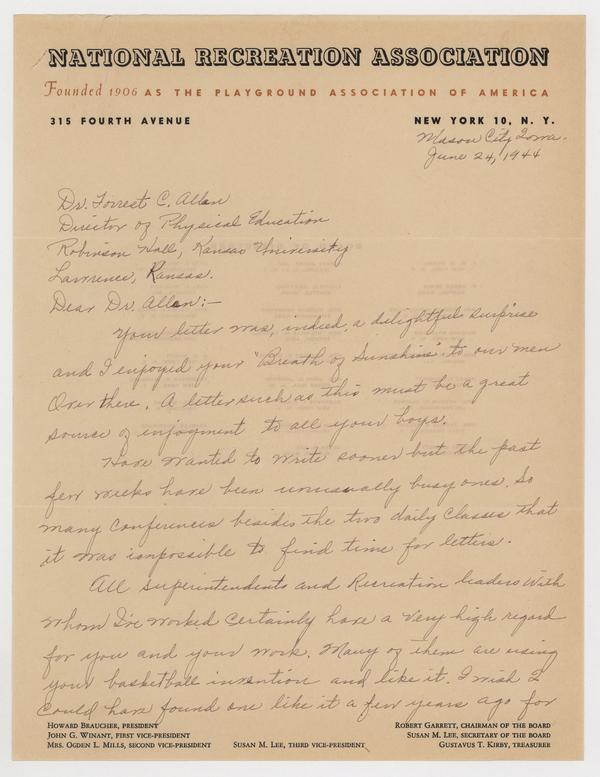 NATIONAL RECREATION ASSOCIATION
Founded 1906 AS THE PLAYGROUND ASSOCIATION OF AMERICA
315 FOURTH AVENUE NEW YORK 10, N. Y.
Mason City, Iowa.
June 24, 1944
Dr. Forrest C. Allen
Director of Physical Education
Robinson Hall, Kansas University
Lawrence, Kansas.
Dear Dr. Allen:-
Your letter was, indeed, a delightful surprise
and I enjoyed your "Breath of Sunshine" to our men
Over there. A letter such as this must be a great
source of enjoyment to all your boys.
Have wanted to write sooner but the past
few weeks have been unusually busy ones. So
many conferences besides the two daily classes that
it was impossible to find time for letters.
All Superintendents and Recreation leaders with
whom I've worked certainly have a very high regard
for you and your work. Many of them are using
your basketball invention and like it. I wish I
could have found one like it a few years ago for
HOWARD BRAUCHER, PRESIDENT ROBERT GARRETT, CHAIRMAN OF THE BOARD
JOHN G. WINANT, FIRST VICE-PRESIDENT SUSAN M. LEE, SECRETARY OF THE BOARD
MRS. OGDEN L. MILLS, SECOND VICE-PRESIDENT SUSAN M. LEE, THIRD VICE-PRESIDENT GUSTAVUS T. KIRBY, TREASURER